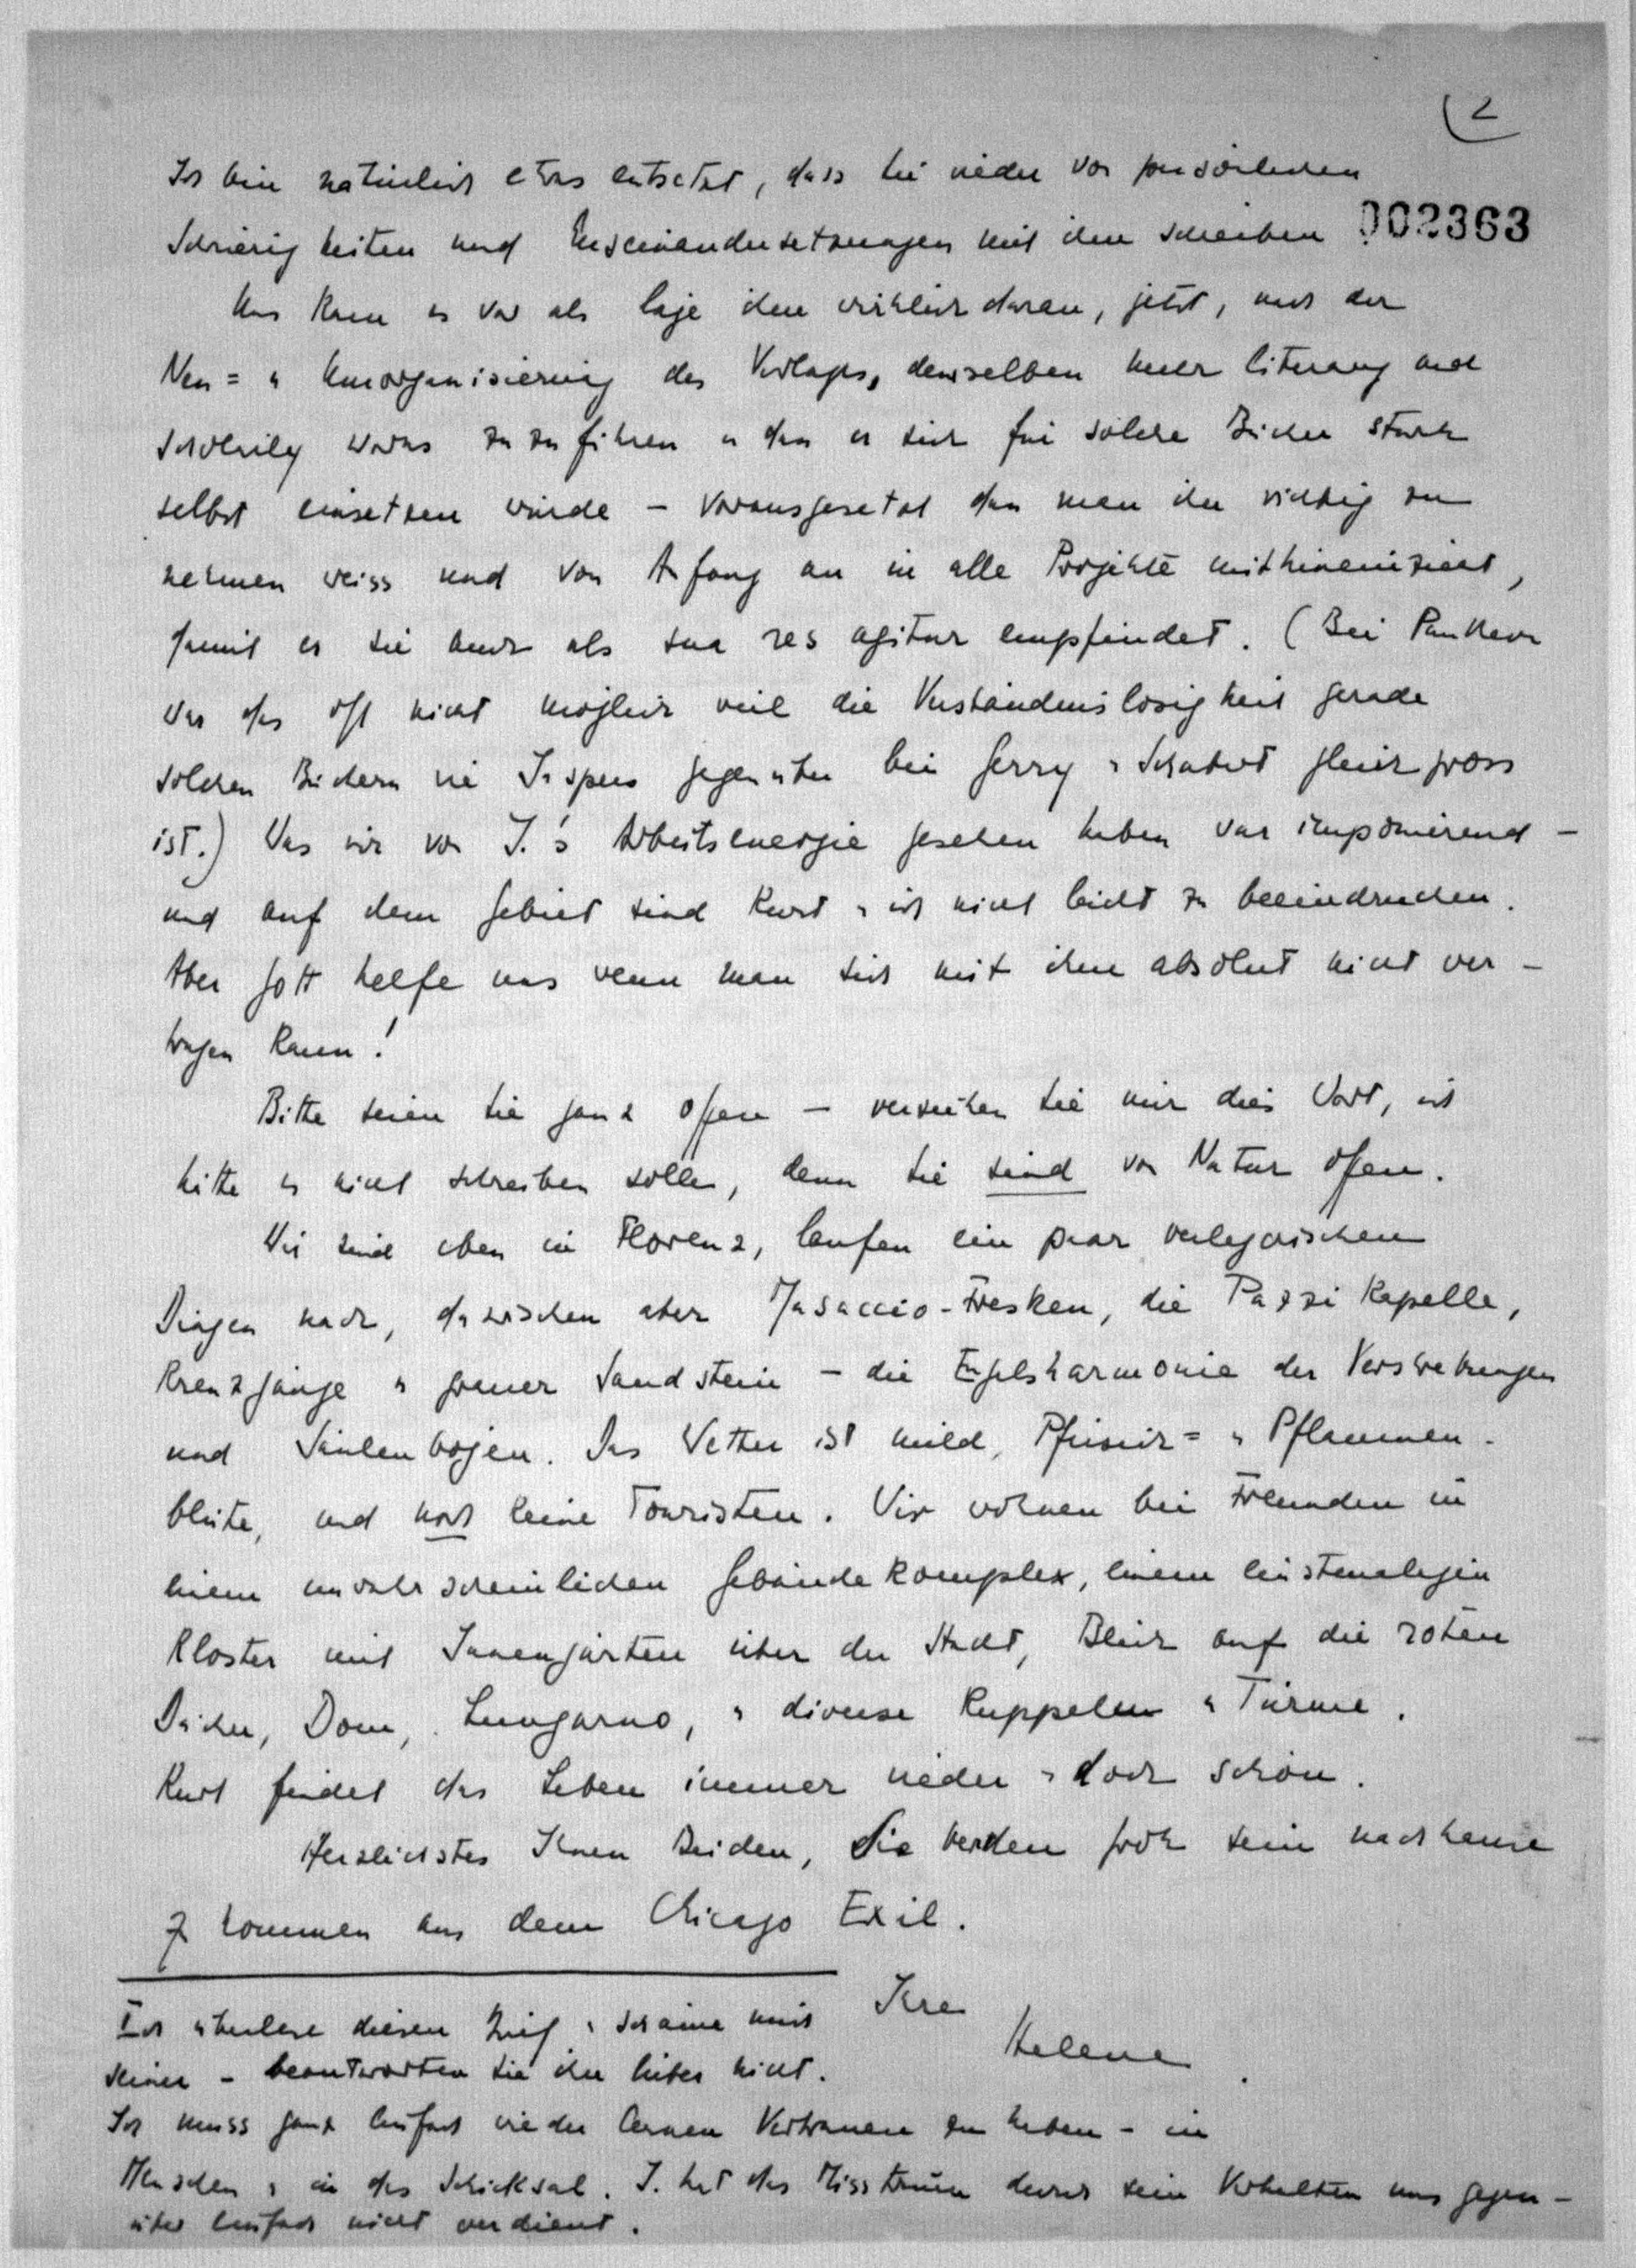 2
Ich bin natürlich etwas entsetzt, dass Sie wieder von persönlichen
002363
Schwierigkeiten und Auseinandersetzungen mit ihm schreiben
Uns kam es vor als läge ihm wirklich daran, jetzt, nach der
Neu= u Umorganisierung des Verlages, demselben mehr literary and
scholarly works zuzuführen u dass er sich für solche Bücher stark
selbst einsetzen würde – vorausgesetzt dass man ihn richtig zu
nehmen weiss und von Anfang an in alle Projekte mithineinzieht,
damit er sie auch als sua res agitur empfindet. (Bei Pantheon
war das oft nicht möglich weil die Verständnislosigkeit gerade
solchen Büchern wie Jaspers gegenüber bei Jerry u Schabert gleich gross
ist.) Was wir von J.'s Arbeitsenergie gesehen haben war imponierend –
und auf dem Gebiet sind Kurt u ich nicht leicht zu beeindrucken.
Aber Gott helfe uns wenn man sich mit ihm absolut nicht ver-
tragen kann!
Bitte seien Sie ganz offen – verzeihen Sie mir dies Wort, ich
hätte es nicht schreiben sollen, denn Sie sind von Natur offen.
Wir sind eben in Florenz, laufen ein paar verlegerischen
Dingen nach, dazwischen aber Masaccio-Fresken, die Pazzi Kapelle,
Kreuzgänge u grauer Sandstein – die Engelsharmonie der Verstrebungen
und Säulenbogen. Das Wetter ist mild, Pfirsich= u Pflaumen-
blüte, und noch keine Touristen. Wir wohnen bei Freunden in
einem unwahrscheinlichen Gebäudekomplex, einem einstmaligen
Kloster mit Innengärten über der Stadt, Blick auf die roten
Dächer, Dom, Lungarno, u diverse Kuppeln u Türme.
Kurt findet das Leben immer wieder u doch schön.
Herzlichstes Ihnen Beiden, Sie werden froh sein nachhause
z kommen aus dem Chicago Exil.
Ihre
Helene.
Ich überlese diesen Brief u schäme mich
seiner – beantworten Sie ihn lieber nicht.
Ich muss ganz einfach wieder lernen Vertrauen zu haben – in
Menschen u in das Schicksal. J. hat das Misstrauen durch sein Verhalten uns gegen-
über einfach nicht verdient.